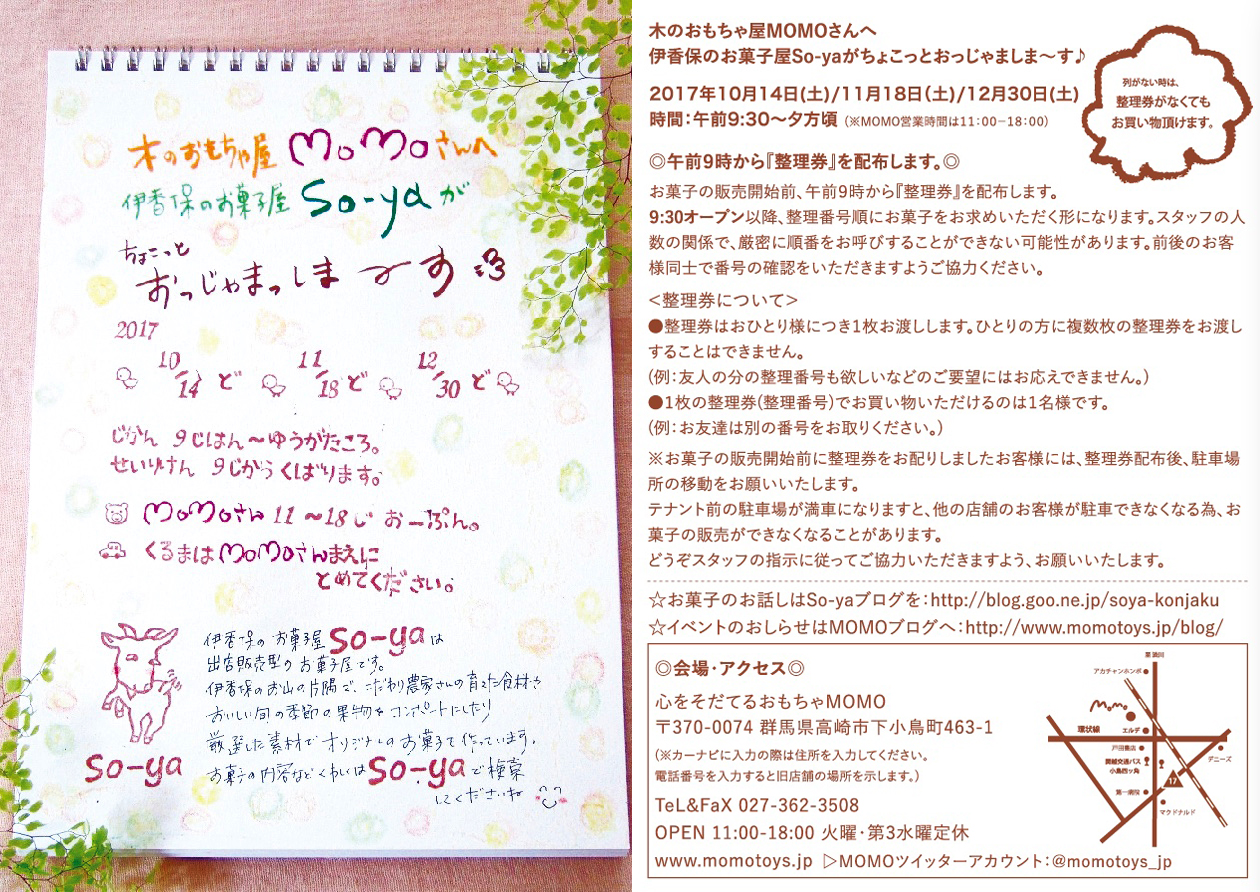 木のおもちゃ屋 MoMoさんへ
伊香保のお菓子屋 So-yaが
ちょこっと
おっじゃまっしま〜す
2017
10/14ど 11/18ど 12/30ど
じかん 9じはん〜ゆうがたころ。
せいりけん 9じからくばります。
MoMoさん 11〜18じ おーぷん。
くるまはMoMoさんまえに
とめてください。
伊香保のお菓子屋So-yaは
出店販売型のお菓子屋です。
伊香保のお山の片隅で、こだわり農家さんの育てた食材や
おいしい旬の季節の果物をコンポートにしたり
厳選した素材でオリジナルのお菓子を作っています。
お菓子の内容などくわしくはSo-yaで検索
してくださいね
So-ya
木のおもちゃ屋MOMOさんへ
伊香保のお菓子屋So-yaがちょこっとおっじゃましま〜す♪
2017年10月14日(土)/11月18日(土)/12月30日(土)
時間:午前9:30〜夕方頃 (※MOMO営業時間は11:00-18:00)
列がない時は、
整理券がなくても
お買い物頂けます。
◎午前9時から『整理券』を配布します。◎
お菓子の販売開始前、午前9時から『整理券』を配布します。
9:30オープン以降、整理番号順にお菓子をお求めいただく形になります。スタッフの人
数の関係で、厳密に順番をお呼びすることができない可能性があります。前後のお客
様同士で番号の確認をいただきますようご協力ください。
<整理券について>
●整理券はおひとり様につき1枚お渡しします。ひとりの方に複数枚の整理券をお渡し
することはできません。
(例:友人の分の整理番号も欲しいなどのご要望にはお応えできません。)
●1枚の整理券(整理番号)でお買い物いただけるのは1名様です。
(例:お友達は別の番号をお取りください。)
※お菓子の販売開始前に整理券をお配りしましたお客様には、整理券配布後、駐車場
所の移動をお願いいたします。
テナント前の駐車場が満車になりますと、他の店舗のお客様が駐車できなくなる為、お
菓子の販売ができなくなることがあります。
どうぞスタッフの指示に従ってご協力いただきますよう、お願いいたします。
☆お菓子のお話しはSo-yaブログを:http://blog.goo.ne.jp/soya-konjaku
☆イベントのおしらせはMOMOブログへ:http://www.momotoys.jp/blog/
◎会場・アクセス◎
心をそだてるおもちゃMOMO
〒370-0074 群馬県高崎市下小鳥町463-1
(※カーナビに入力の際は住所を入力してください。
電話番号を入力すると旧店舗の場所を示します。)
TeL&FaX 027-362-3508
OPEN 11:00-18:00 火曜・第3水曜定休
www.momotoys.jp ▷MOMOツイッターアカウント:@momotoys_jp
至渋川
アカチャンホンポ
MoMo
環状線
エルデ
戸田書店
デニーズ
関越交通バス
小鳥四ッ角
17
第一病院
マクドナルド